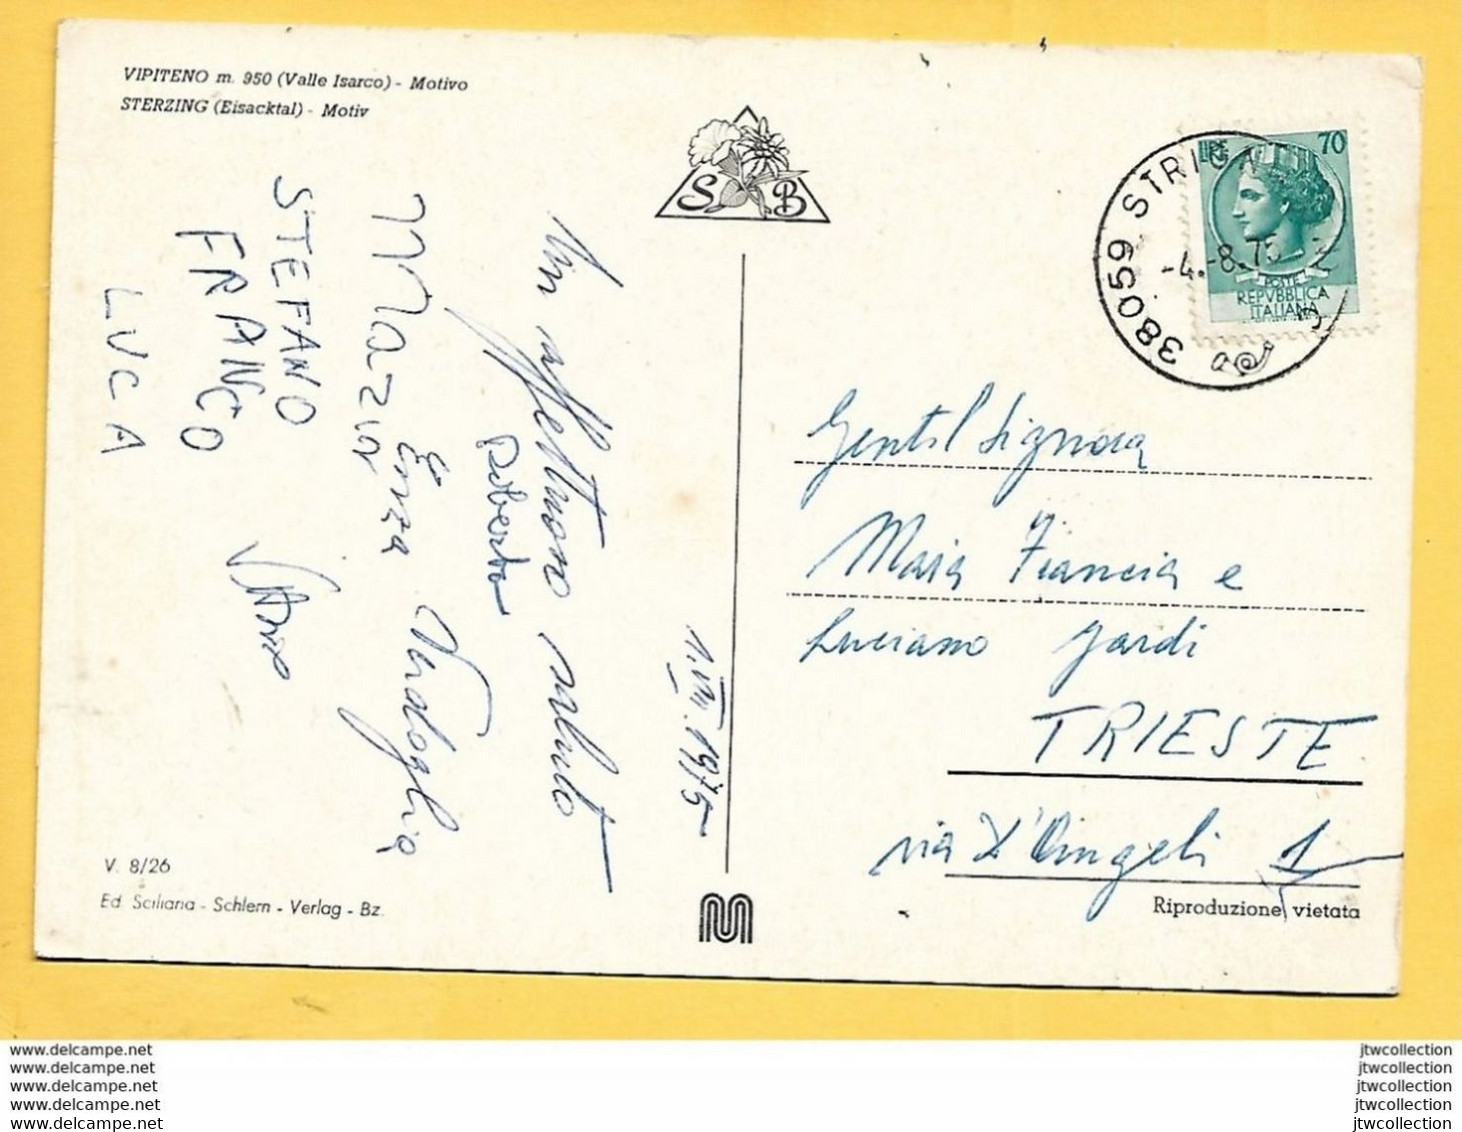 VIPITENO m. 950 (Valle Isarco) - Motivo
STERZING (Eisacktal) - Motiv
S B
38059 STRIG
-4.-8.75
LIRE 70
POSTE
REPVBBLICA
ITALIANA
Un affettuoso saluto
Roberta
1.VIII.1975
Enza
STEFANO
FRANCO
LUCA
Gentil Signora
Maria Francia e
Luciano Jardi
TRIESTE
via D'Angeli 1
V. 8/26
Ed. Sciliaria - Schlern - Verlag - Bz.
Riproduzione vietata
www.delcampe.net
www.delcampe.net
www.delcampe.net
www.delcampe.net
www.delcampe.net
jtwcollection
jtwcollection
jtwcollection
jtwcollection
jtwcollection